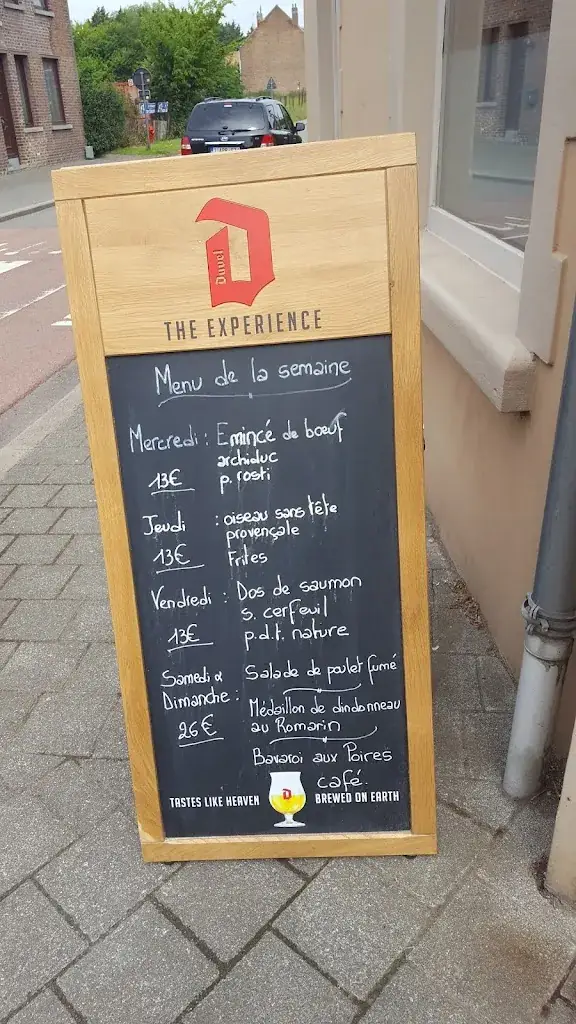 Duvel
THE EXPERIENCE
Menu de la semaine
Mercredi : Emincé de bœuf
archiduc
13€ p. rosti
Jeudi : oiseau sans tête
provençale
13€ Frites
Vendredi : Dos de saumon
s. cerfeuil
13€ p.d.t. nature
Samedi & Salade de poulet fumé
Dimanche : Médaillon de dindonneau
26€ au Romarin
Bavaroi aux Poires
café.
TASTES LIKE HEAVEN BREWED ON EARTH